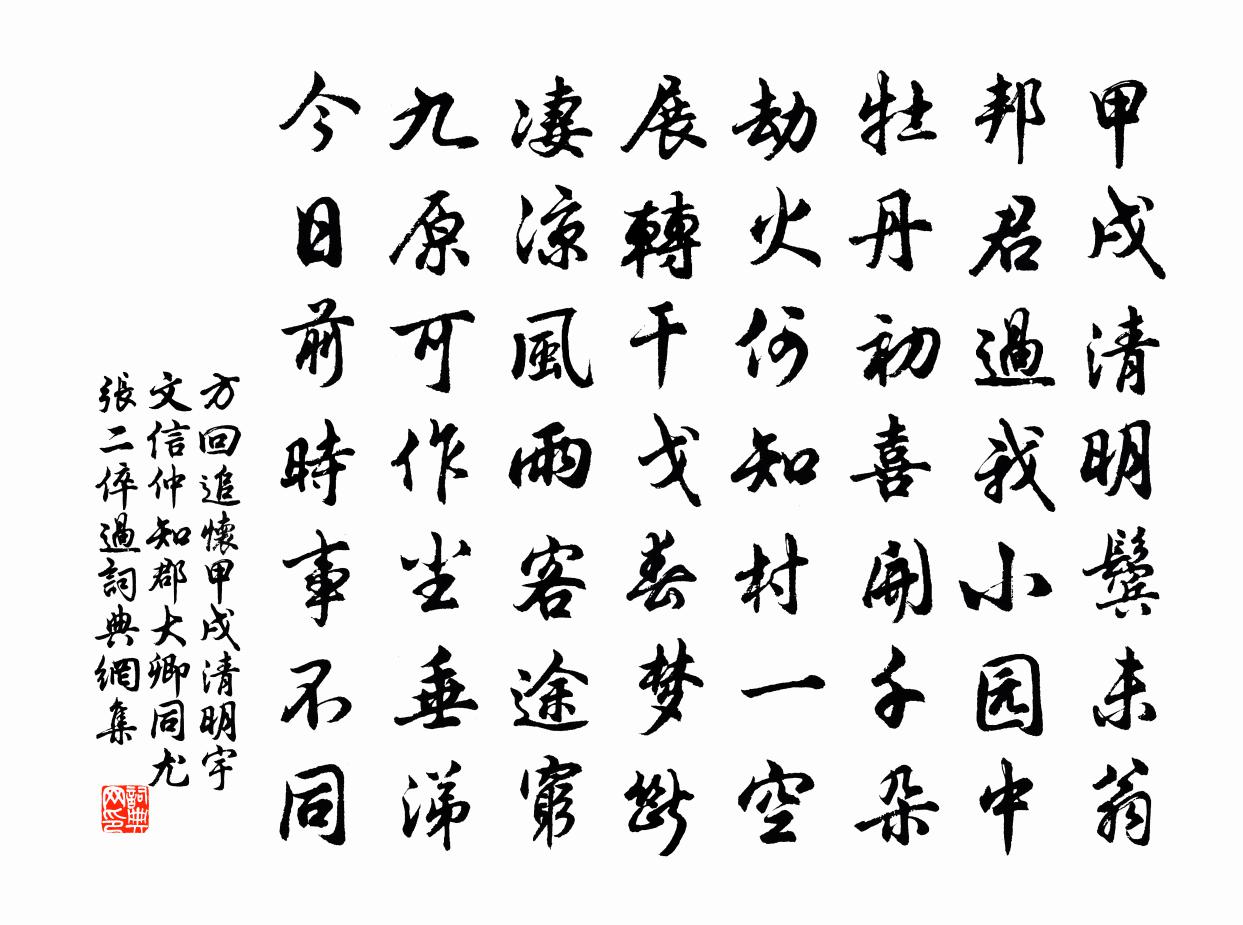 甲戌清明鬓未翁
邦君過我小园中
牡丹初喜開千朵
劫火何知村一空
展轉干戈春梦斷
凄涼風雨客途窮
九原可作坐垂涕
今日前時事不同
方回追懷甲戌清明宇
文信仲知郡大卿同尤
張二倅過詞典網集
詞典网印